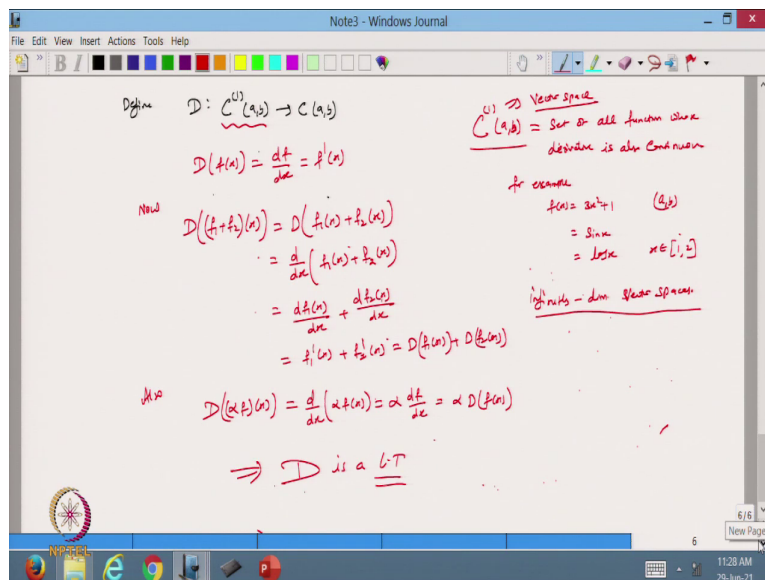 Note3 - Windows Journal
File Edit View Insert Actions Tools Help
B I
Define D: C⁽¹⁾(a,b) → C(a,b)
D(f(x)) = df/dx = f'(x)
Now
D((f₁+f₂)(x)) = D(f₁(x)+f₂(x))
= d/dx (f₁(x)+f₂(x))
= df₁(x)/dx + df₂(x)/dx
= f₁'(x) + f₂'(x) = D(f₁(x)) + D(f₂(x))
Also D((αf)(x)) = d/dx (αf(x)) = α df/dx = α D(f(x))
⇒ D is a L.T
⇒ Vector space
C⁽¹⁾(a,b) = Set of all function whose
derivative is also continuous
for example
f(x) = 3x²+1 (a,b)
= sinx
= logx x ∈ [1,2]
infinite-dim vector spaces.
6/6
New Page
6
NPTEL
11:28 AM
29-Jun-21